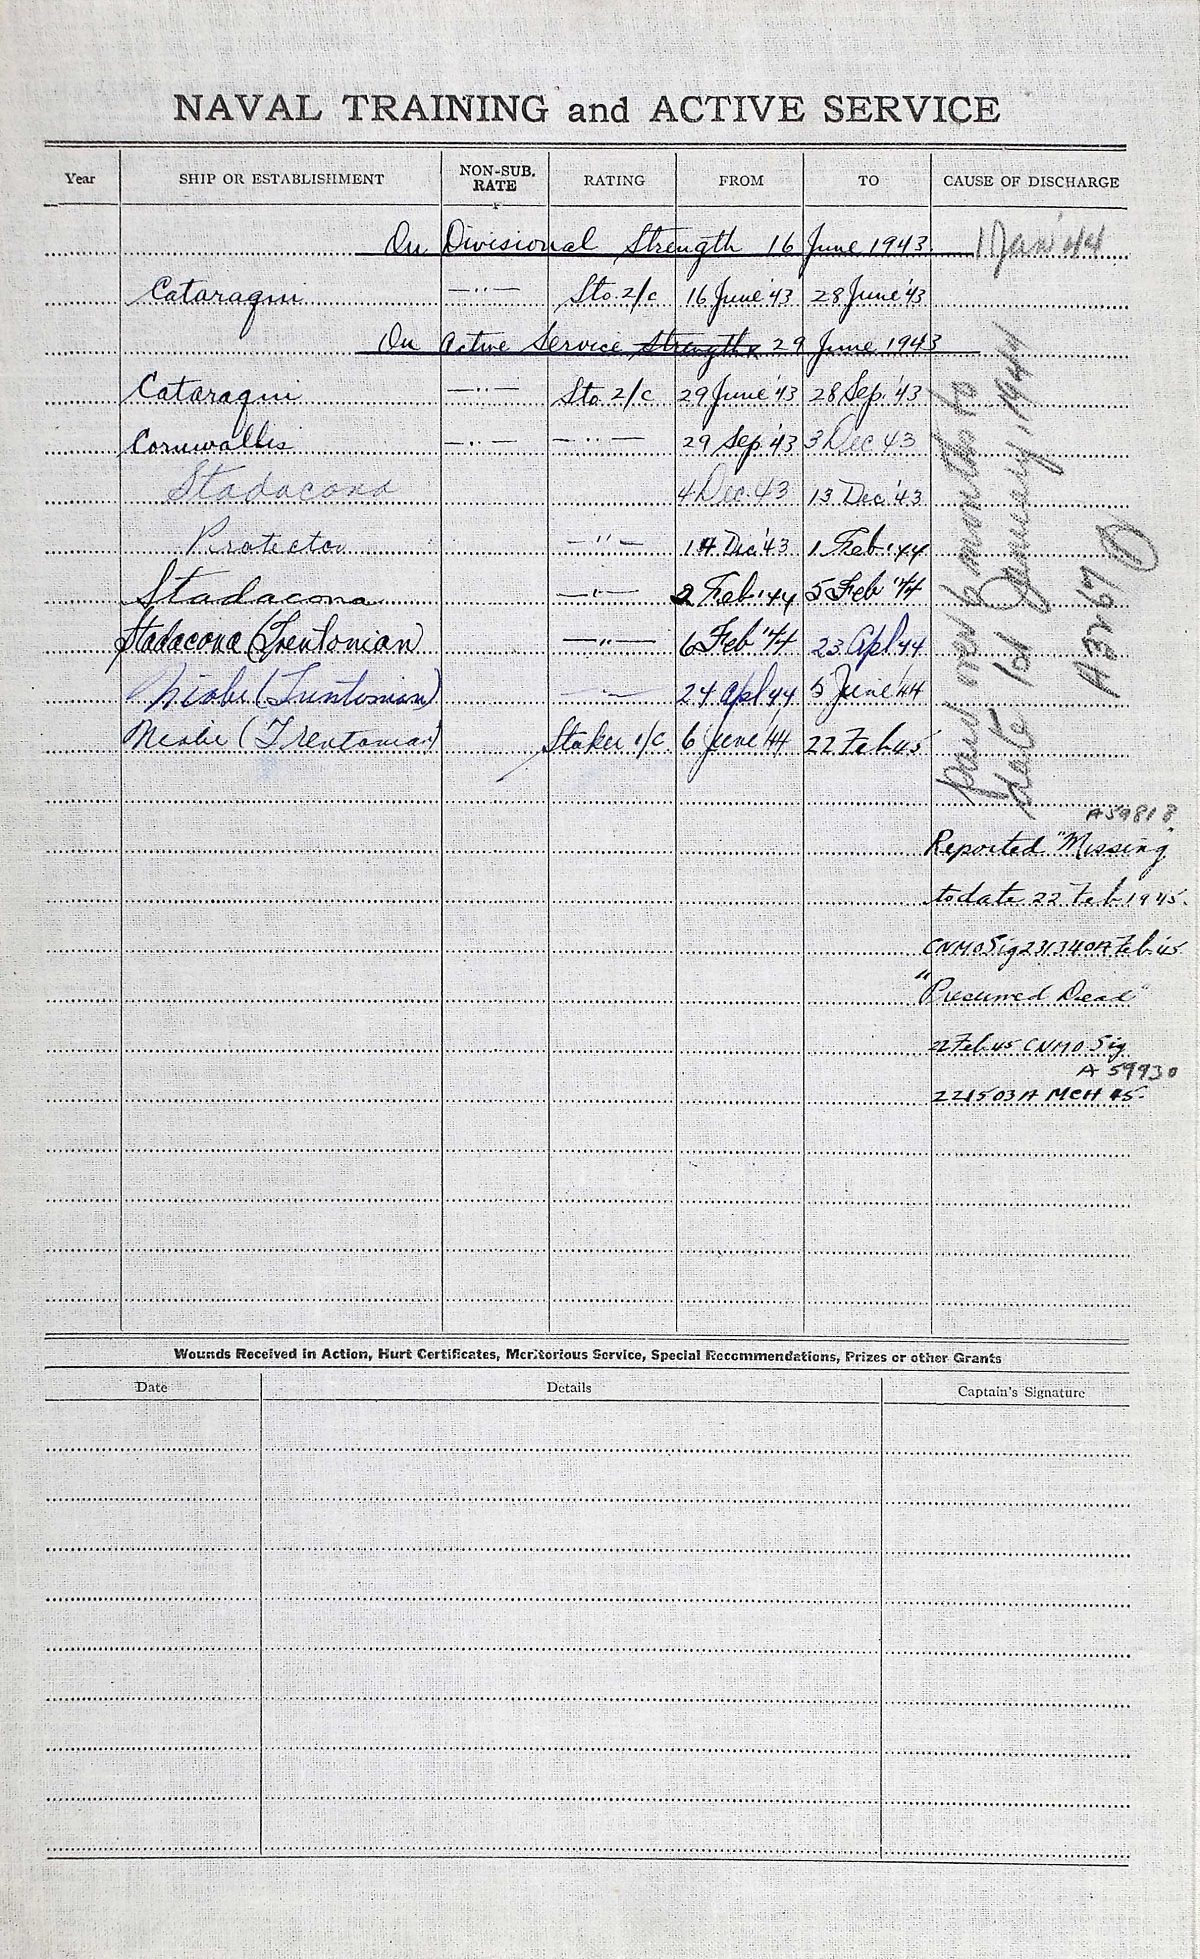 NAVAL TRAINING and ACTIVE SERVICE
Year SHIP OR ESTABLISHMENT NON-SUB. RATE RATING FROM TO CAUSE OF DISCHARGE
On Divisional Strength 16 June 1943 1 Jan '44
Cataraqui —··— Sto 2/c 16 June '43 28 June '43
On Active Service Strength 29 June 1943
Cataraqui —··— Sto 2/c 29 June '43 28 Sep. '43
Cornwallis —··— —··— 29 Sep '43 3 Dec 43
Stadacona 4 Dec. 43 13 Dec '43
Protector —"— 14 Dec '43 1 Feb '44
Stadacona —"— 2 Feb '44 5 Feb '44
Stadacona (Trentonian) —"— 6 Feb '44 23 Apl 44
Niobe (Trentonian) —"— 24 Apl 44 5 June '44
Niobe (Trentonian) Stoker 1/c 6 June '44 22 Feb 45
paid over 6 months to
date 1st January, 1944
A3267
A59818
Reported "Missing"
to date 22 Feb 1945.
CNMO Sig 231340A Feb. 45
"Presumed Dead"
22 Feb. 45 CNMO Sig
A 59930
221503A MCH 45.
Wounds Received in Action, Hurt Certificates, Meritorious Service, Special Recommendations, Prizes or other Grants
Date Details Captain's Signature